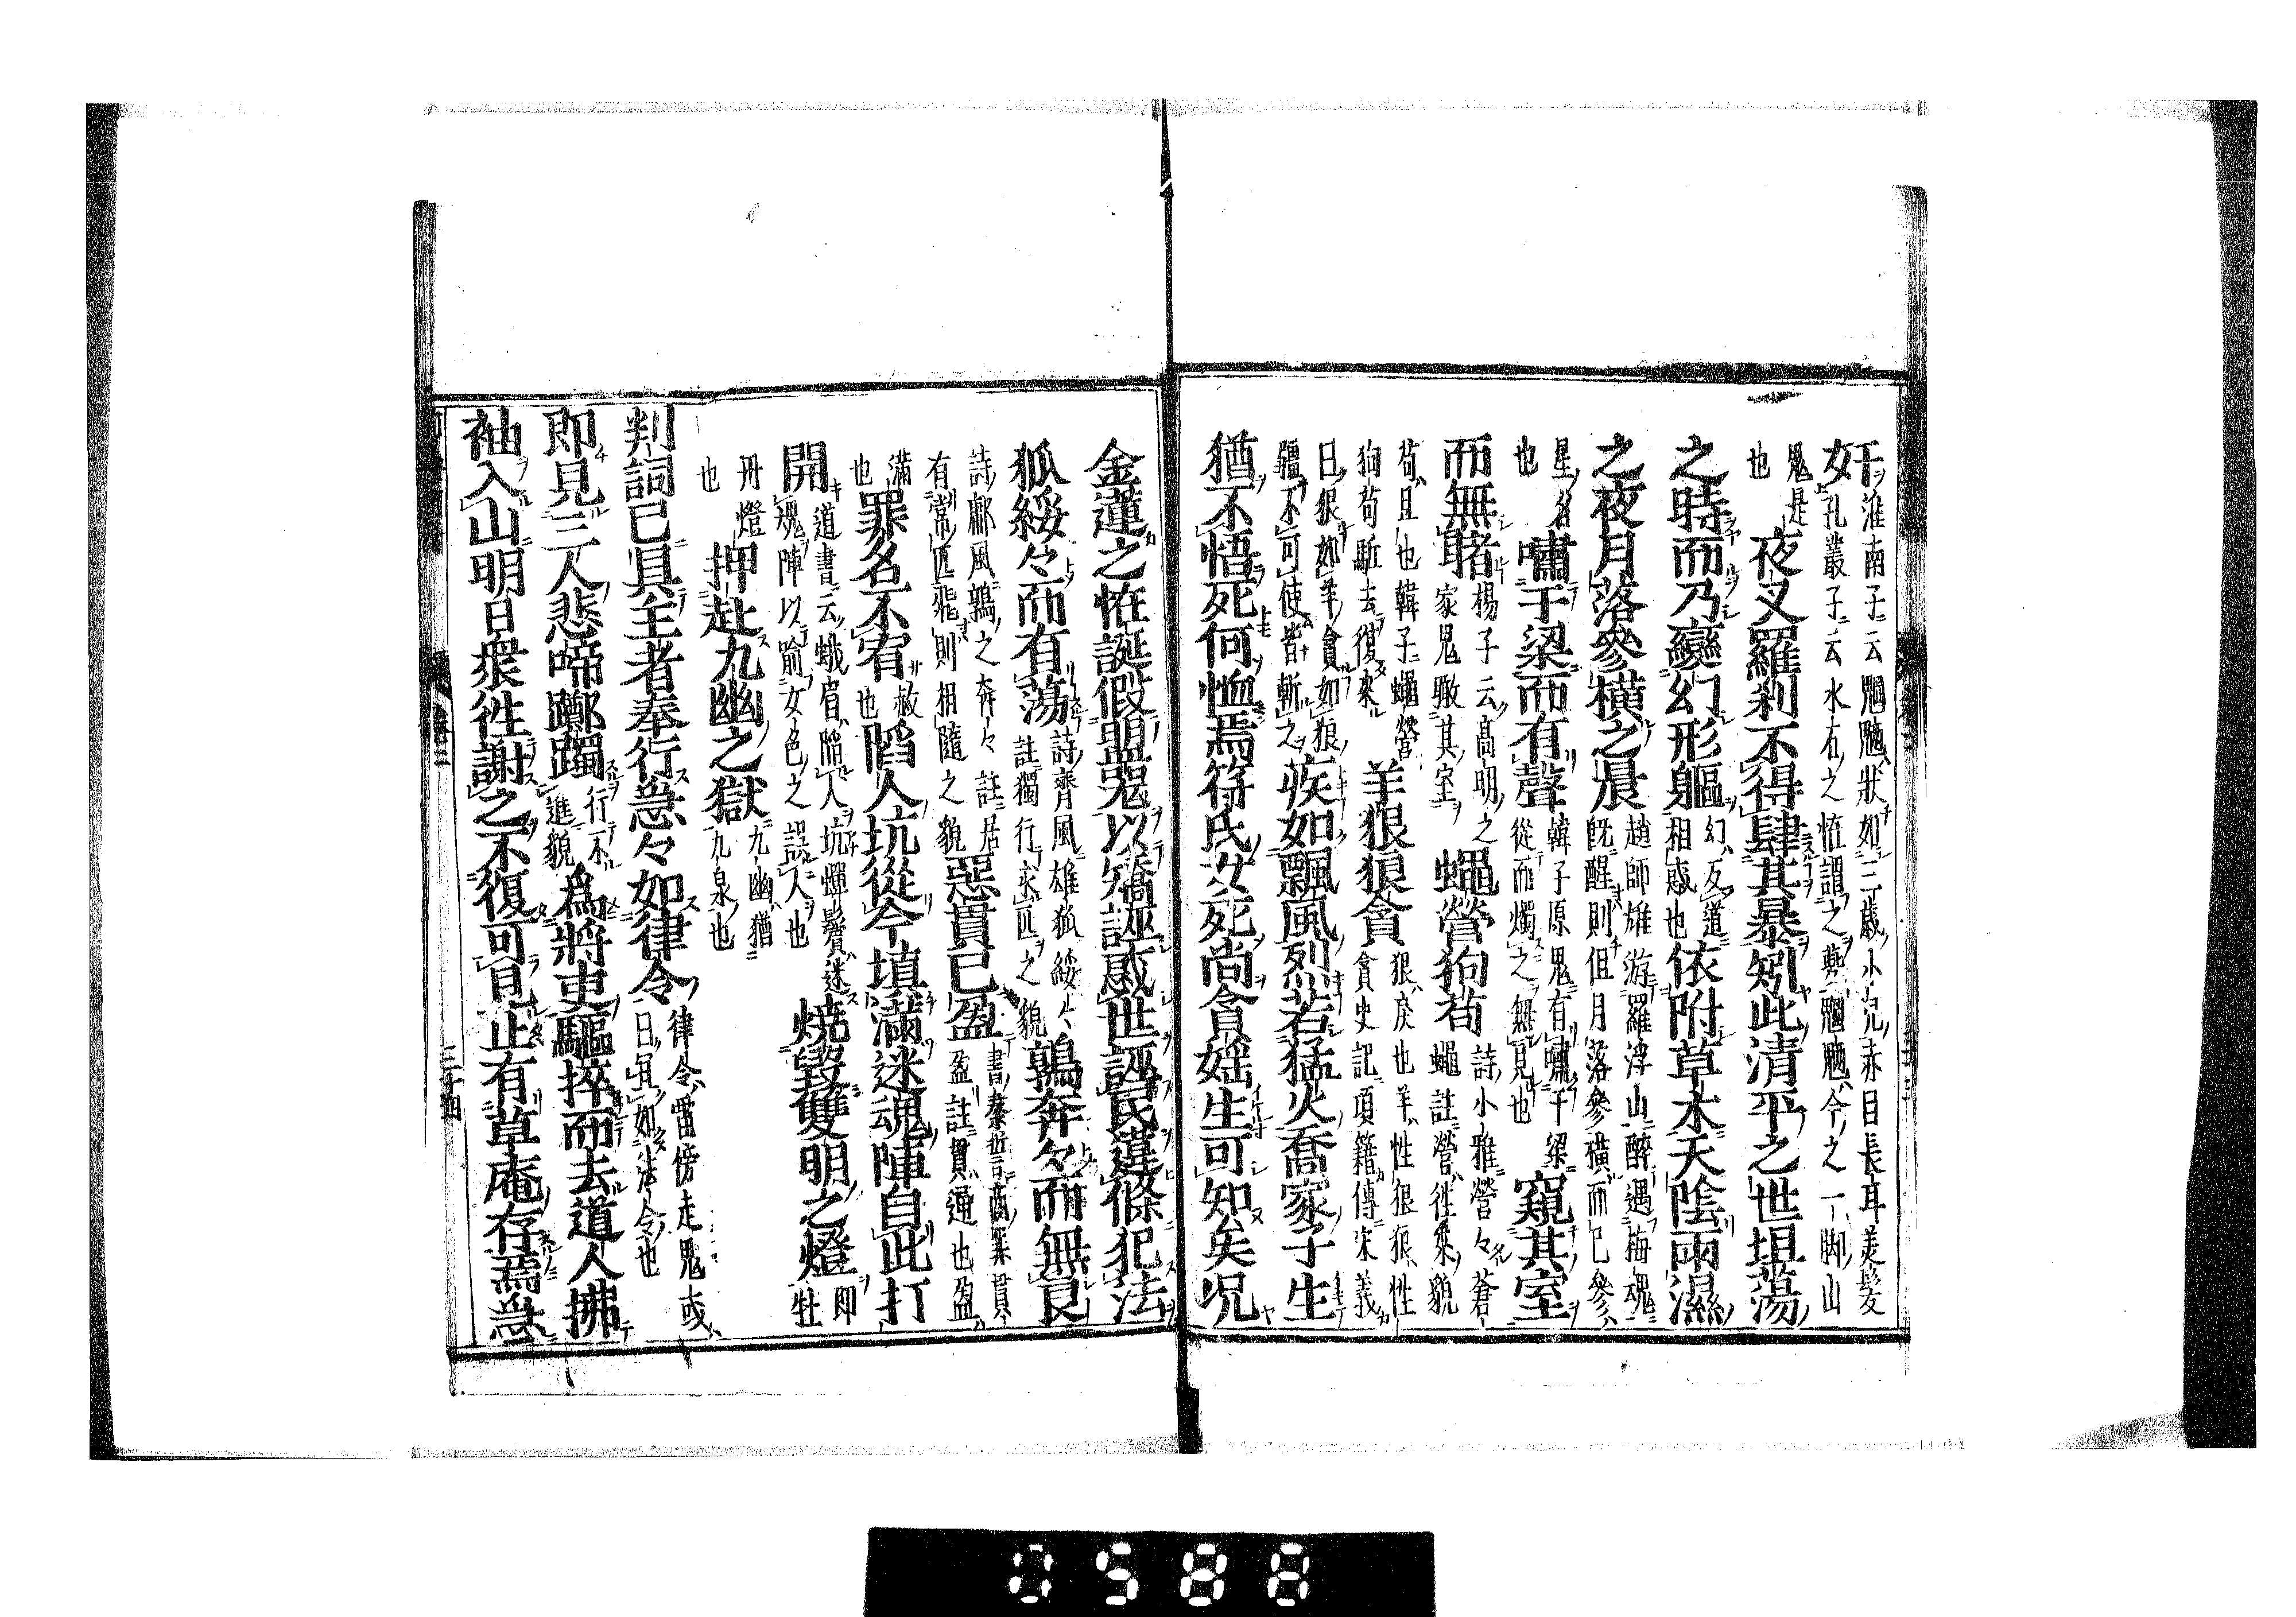 奸淮南子云魍魎狀如三歲小兒赤目長耳美髮
孔叢子云水石之恠謂之夔魍魎今之一脚山
鬼是也夜叉羅刹不得肆其暴矧此清平之世坦蕩
之時而乃變幻形軀幻反道相惑也依附草木天陰雨濕
之夜月落參橫之晨趙師雄游羅浮山醉遇梅魂既醒則但月落參橫而已參
星名也嘯于梁而有聲韓子原鬼有嘯于梁從而燭之無見也窺其室
而無睹楊子云高明之家鬼瞰其室蠅營狗苟詩小雅營々蒼蠅註營往來貌
苟且也韓子蠅營狗苟駈去復來羊狠狼貪狠戾也羊性狠狼性貪史記項籍傳宋義
曰狠如羊貪如狼彊不可使皆斬之疾如飄風烈若猛火喬家子生
猶不悟死何恤焉符氏女死尚貪婬生可知矣况
金蓮之恠誕假盟器以矯誣惑世誣民違條犯法
狐綏々而有蕩詩齊風雄狐綏々註獨行求匹之貌鶉奔々而無良
詩鄘風鶉之奔々註居有常匹飛則相隨之貌惡貫已盈書泰誓商罪貫盈註貫通也盈
滿也罪名不宥赦也陷人坑從今填滿迷魂陣自此打
開道書云蛾眉陷人坑蟬鬢迷魂陣以喻女色之誤人也燒毀雙明之燈即牡
丹燈也押赴九幽之獄九幽猶九泉也
判詞已具主者奉行急々如律令律令雷傍走鬼或曰宜如法令也
即見三人悲啼躑躅行不進貌爲將吏驅捽而去道人拂
袖入山明日衆往謝之不復可見止有草庵存焉急
卷三
三十四
0588